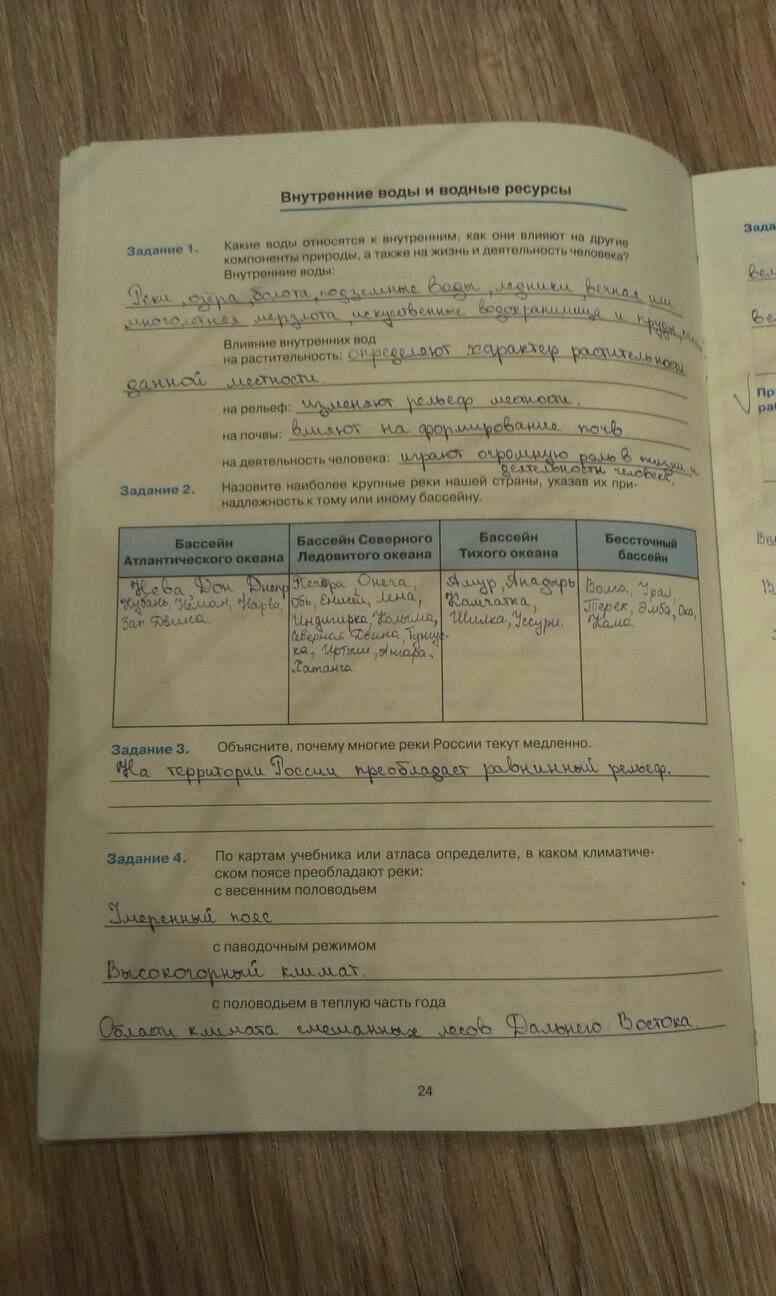 Внутренние воды и водные ресурсы
Задание 1. Какие воды относятся к внутренним, как они влияют на другие
компоненты природы, а также на жизнь и деятельность человека?
Внутренние воды:
Реки, озёра, болота, подземные воды, ледники, вечная или
многолетная мерзлота, искуственные водохранилища и пруды,
Влияние внутренних вод
на растительность: определяют характер растительности
данной местности.
на рельеф: изменяют рельеф местности.
на почвы: влияют на формирование почв
на деятельность человека: играют огромную роль в жизни и
деятельности человека.
Задание 2. Назовите наиболее крупные реки нашей страны, указав их при-
надлежность к тому или иному бассейну.
Бассейн
Атлантического океана
Бассейн Северного
Ледовитого океана
Бассейн
Тихого океана
Бессточный
бассейн
Нева, Дон, Днепр
Кубань, Неман, Нарва,
Зап. Двина.
Печора, Онега,
Обь, Енисей, Лена,
Индигирка, Колыма,
Северная Двина, Тунгус-
ка, Иртыш, Ангара,
Хатанга.
Амур, Анадырь
Камчатка,
Шилка, Уссури.
Волга, Урал,
Терек, Эмба, Ока,
Кама.
Задание 3. Объясните, почему многие реки России текут медленно.
На территории России преобладает равнинный рельеф.
Задание 4. По картам учебника или атласа определите, в каком климатиче-
ском поясе преобладают реки:
с весенним половодьем
Умеренный пояс
с паводочным режимом
Высокогорный климат.
с половодьем в теплую часть года
Области климата смешанных лесов Дальнего Востока.
24
Зада
Пр
ра